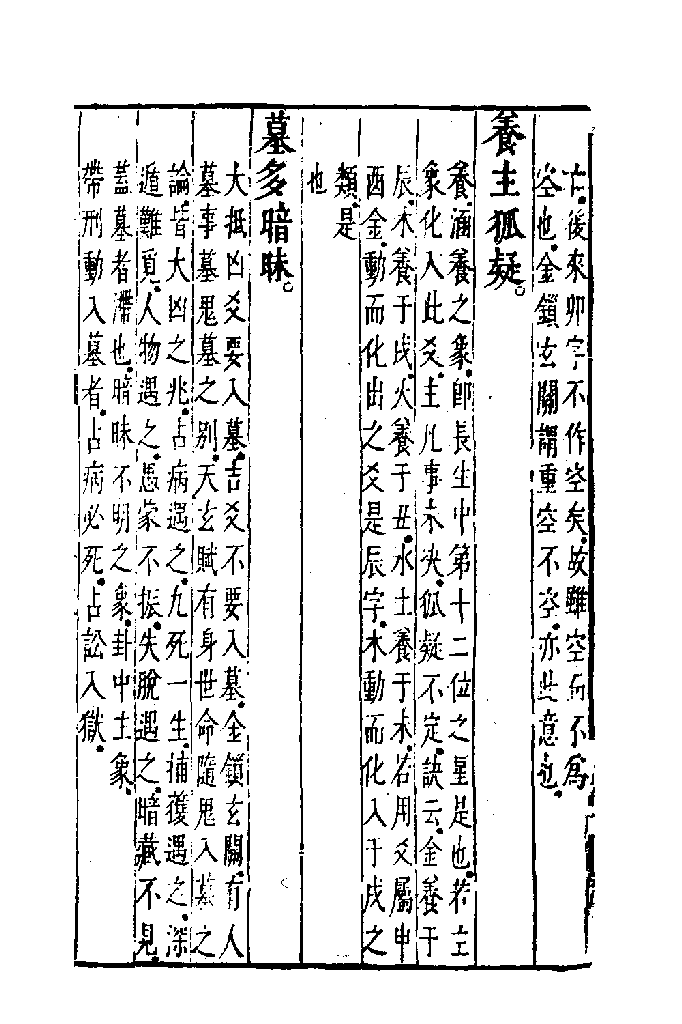 亡後來卯字不作空矣故雖空而不為
空也金鎖玄關謂重空不空亦此意也
養主狐疑
養涵養之象卽長生中第十二位之星是也若主
象化入此爻主凡事未決狐疑不定訣云金養于
辰木養于戌火養于丑水土養于未若用爻屬申
酉金動而化出之爻是辰字木動而化入于戌之
類是
也
墓多暗昧
大抵凶爻要入墓吉爻不要入墓金鎖玄關有人
墓事墓鬼墓之別天玄賦有身世命隨鬼入墓之
論皆大凶之兆占病遇之九死一生捕獲遇之深
遁難覓人物遇之愚蒙不振失脫遇之暗藏不見
蓋墓者滯也暗昧不明之象卦中主象
帶刑動入墓者占病必死占訟入獄